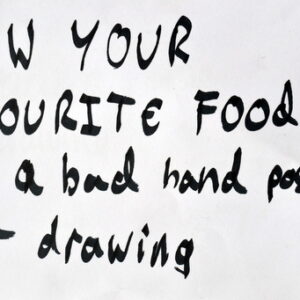 W YOUR
OURITE FOOD
a bad hand
drawing